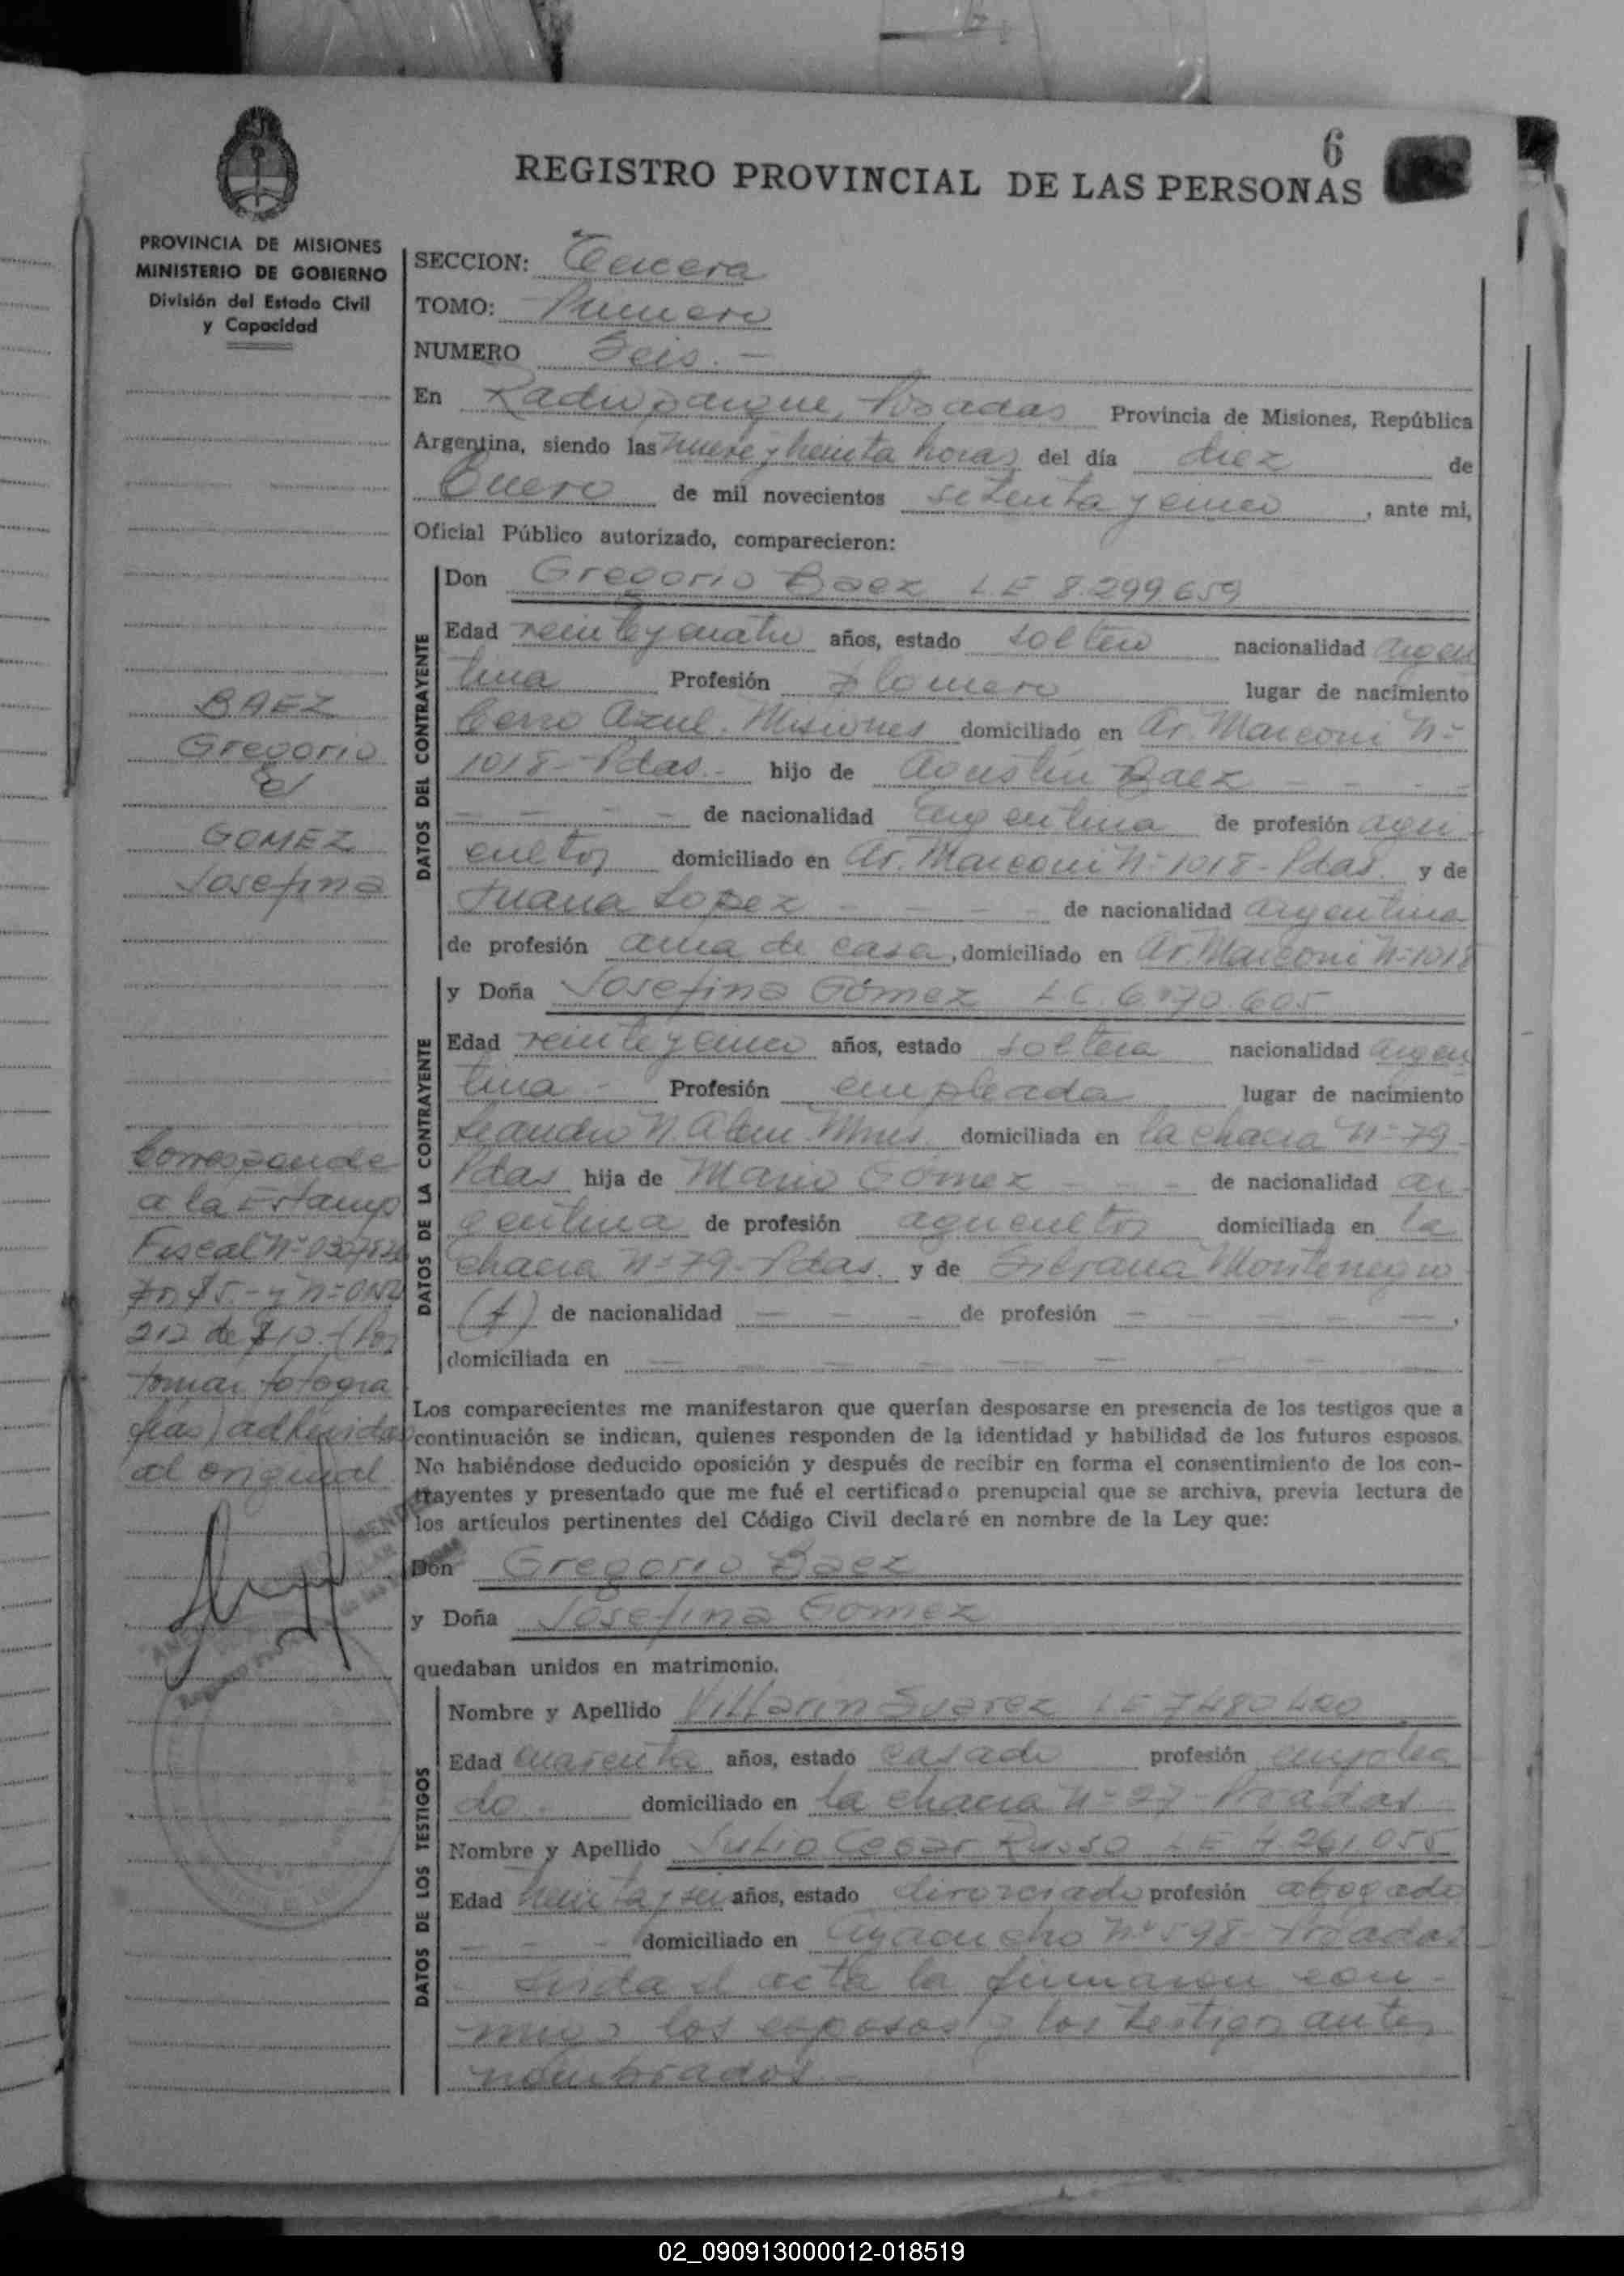 6
REGISTRO PROVINCIAL DE LAS PERSONAS
PROVINCIA DE MISIONES
MINISTERIO DE GOBIERNO
División del Estado Civil
y Capacidad
SECCION: Tercera
TOMO: Primero
NUMERO Seis. -
En Radio parque, Posadas Provincia de Misiones, República
Argentina, siendo las nueve y treinta horas del día diez de
Enero de mil novecientos setenta y cinco, ante mi,
Oficial Público autorizado, comparecieron:
DATOS DEL CONTRAYENTE
Don Gregorio Baez L.E 8.299.659
Edad veinte y cuatro años, estado soltero nacionalidad argen
tina Profesión Plomero lugar de nacimiento
Cerro Azul. Misiones domiciliado en Av. Marconi Nº
1018 - Pdas. - hijo de Agustin Baez - - - -
- - - - de nacionalidad argentina de profesión agri
cultor domiciliado en Av. Marconi Nº 1018 - Pdas. y de
Juana Lopez - - - - de nacionalidad argentina
de profesión ama de casa, domiciliado en Av. Marconi Nº 1018
DATOS DE LA CONTRAYENTE
y Doña Josefina Gómez L C. 6.170.605
Edad veinte y cinco años, estado soltera nacionalidad argen
tina - Profesión empleada lugar de nacimiento
Leandro N. Alem. Mnes. domiciliada en la chacra Nº 79 -
Pdas hija de Mario Gómez - - - de nacionalidad ar
gentina de profesión agricultor domiciliada en la
chacra Nº 79 - Pdas. y de Silvana Montenegro
(f) de nacionalidad - - - de profesión - - - - -,
domiciliada en - - - - - - - - -
Los comparecientes me manifestaron que querían desposarse en presencia de los testigos que a
continuación se indican, quienes responden de la identidad y habilidad de los futuros esposos.
No habiéndose deducido oposición y después de recibir en forma el consentimiento de los con-
trayentes y presentado que me fué el certificado prenupcial que se archiva, previa lectura de
los artículos pertinentes del Código Civil declaré en nombre de la Ley que:
Don Gregorio Baez
y Doña Josefina Gomez
quedaban unidos en matrimonio.
DATOS DE LOS TESTIGOS
Nombre y Apellido Villarin Suarez LE 7480420
Edad cuarenta años, estado casado profesión emplea
do. domiciliado en la chacra Nº 27 - Posadas
Nombre y Apellido Julio Cesar Russo LE 4.261.055
Edad treinta y seis años, estado divorciado profesión abogado
- - - domiciliado en Ayacucho Nº 598 - Posadas
- Leida el acta la firmaron con -
migo los esposos y los testigos antes
nombrados. -
BAEZ
Gregorio
el
GOMEZ
Josefina
Corresponde
a la Estamp
Fiscal Nº
212 de $10. - (Por
tomar fotogra
fias) adheridas
al original
02_090913000012-018519